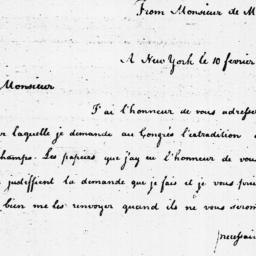 From Monsieur de M
A New York le 10 fevrier
Monsieur
J'ai l'honneur de vous adresser
r laquelle je demande au Congrés l'extradition
champs. Les papiers que j'ay eu l'honneur de vou
justeffient la demande que je fais et je vous prie
bien me les renvoyer quand ils ne vous seron
necessair